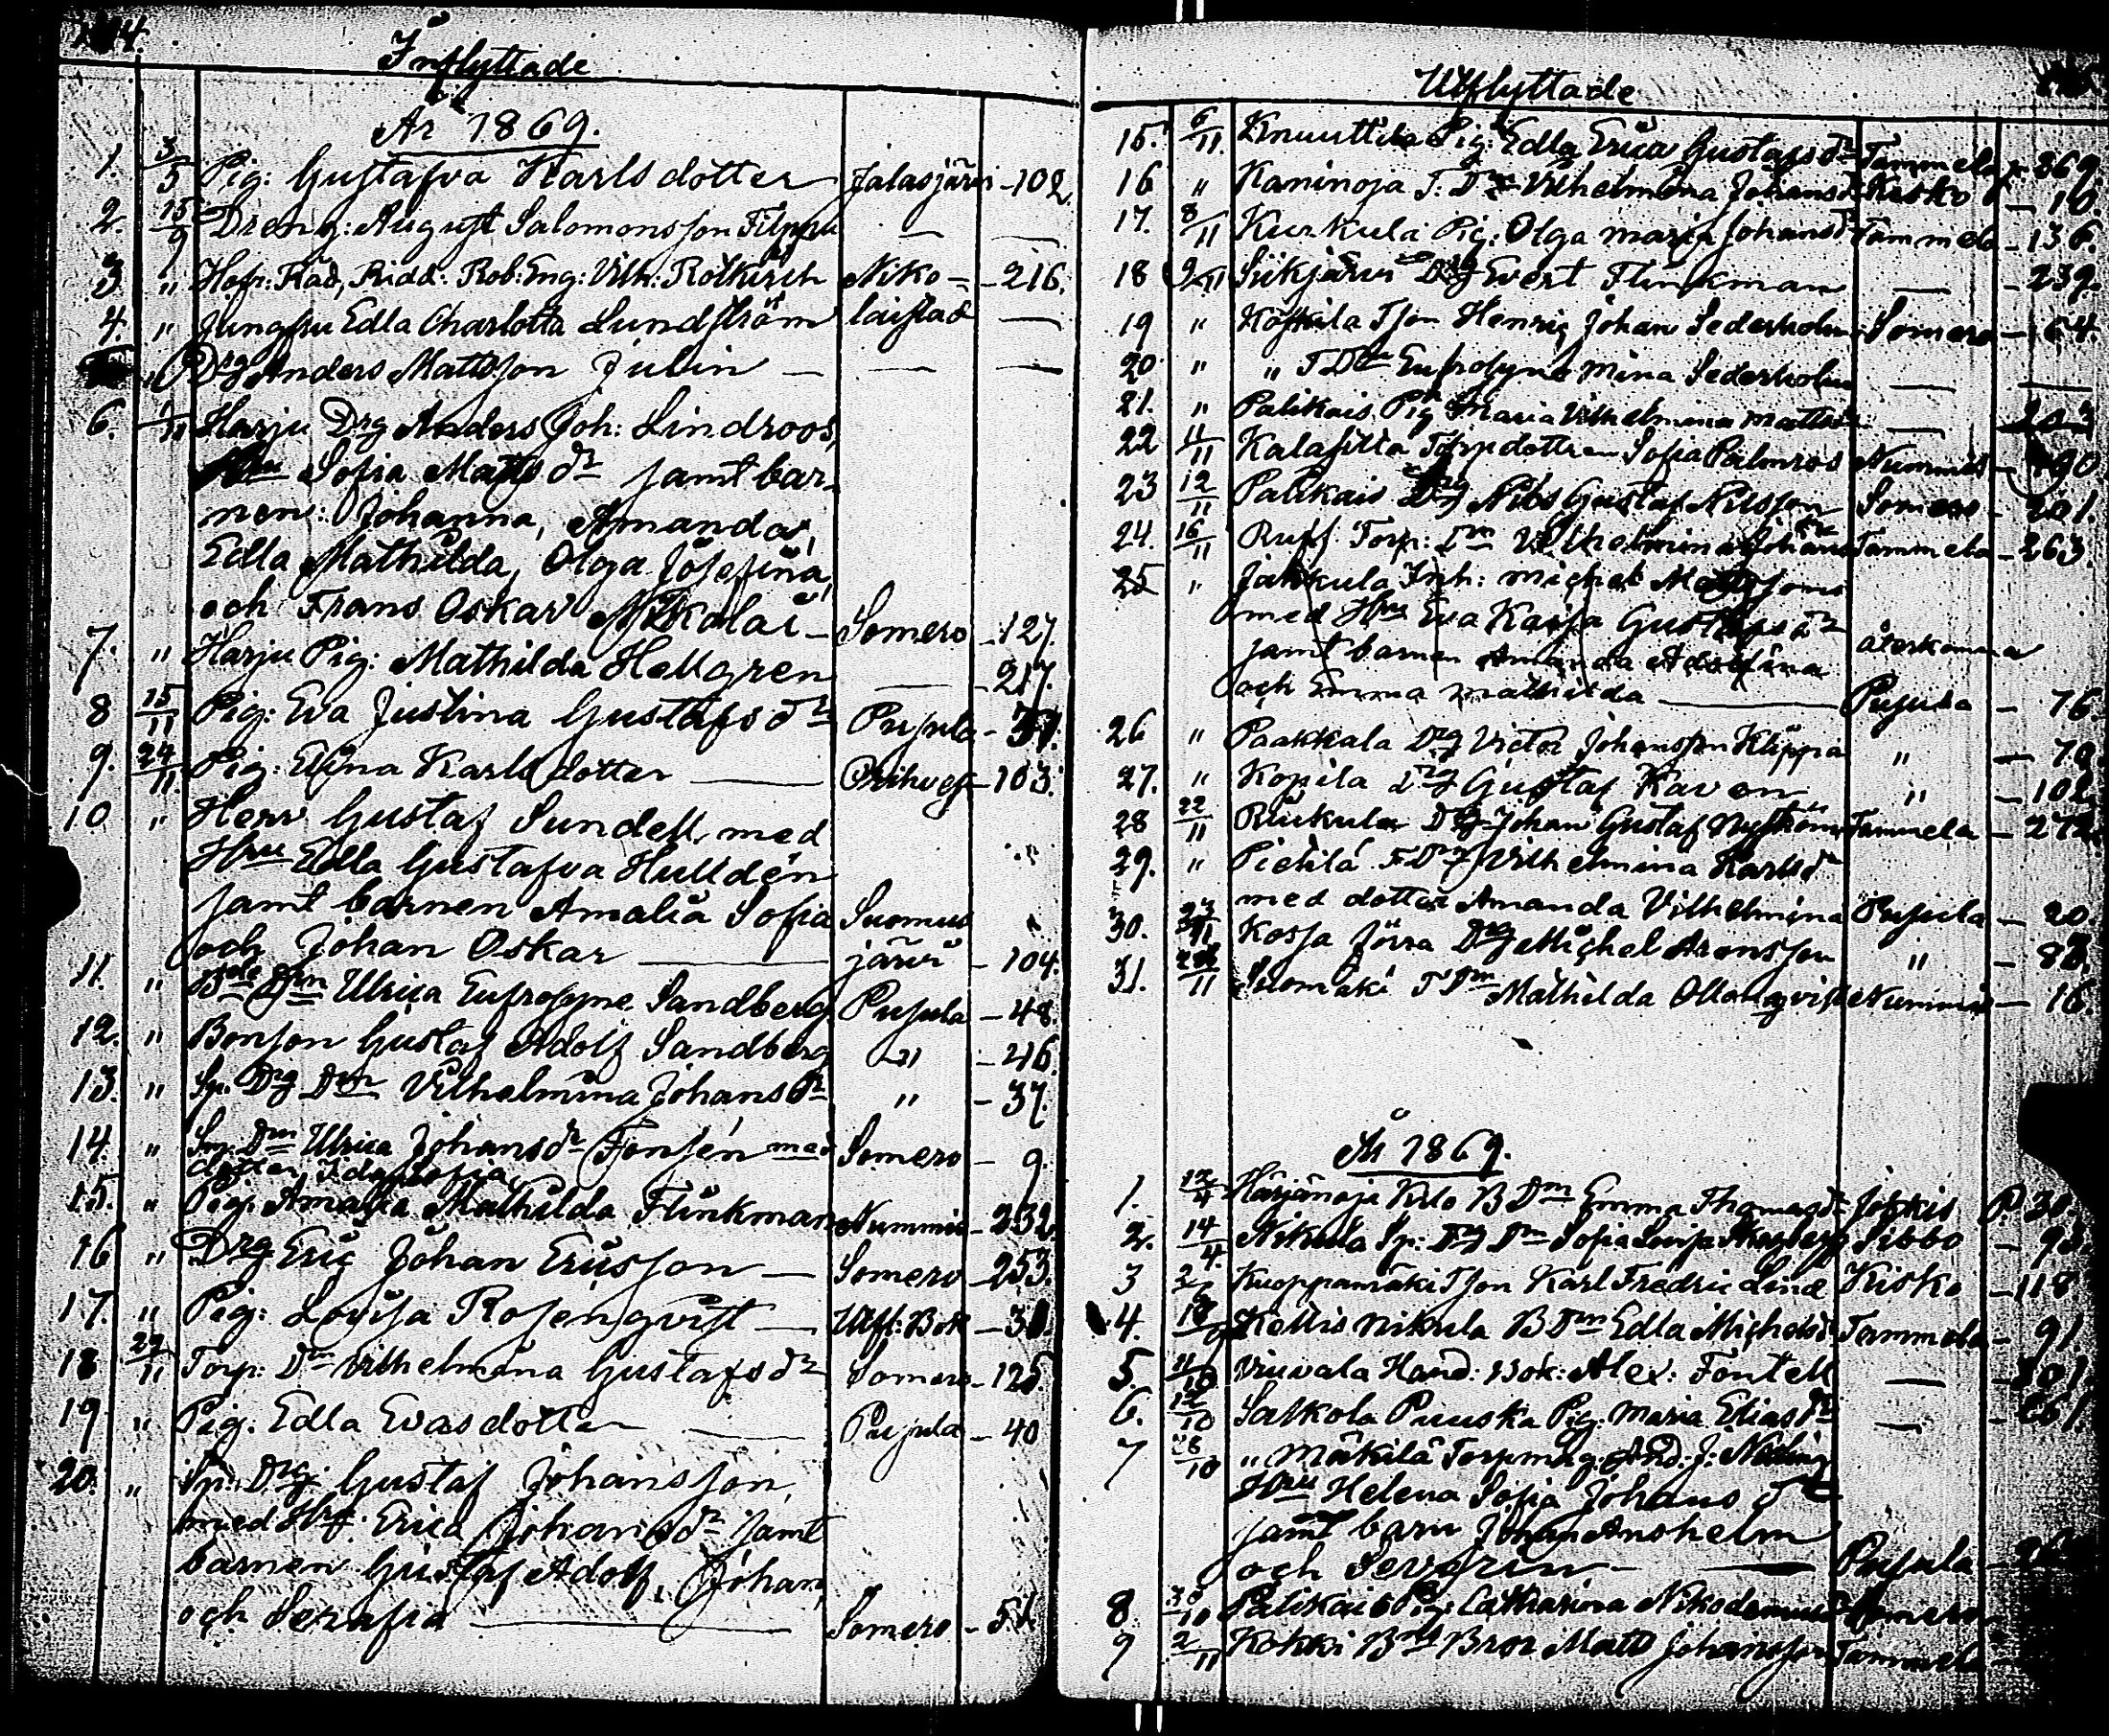 Inflyttade
År 1869.
1. 3/5 Pig: Gustafva Karlsdotter Jalasjärvi - 102.
2. 15/9 Dreng: August Salomonsson Filppu — —
3 " Hofr: Råd, Ridd: Rob: Eng: Vilh: Rotkirch Niko= - 216.
4. " Jungfru Edla Charlotta Lundström laistad —
" Drg Anders Mattsson Julin — — —
6. Harju Drg Anders Joh: Lindroos,
Hru Sofia Matts dr samt bar-
nen: Johanna, Amanda,
Edla Mathilda, Olga Josefina,
och Frans Oskar Nikolai - Somero - 127.
7. " Harju Pig: Mathilda Hellgren — - 217.
8 15/11 Pig: Eva Justina Gustafs dr Pusula - 31.
9. 24/11 Pig: Elina Karlsdotter — Orihvesi - 103.
10 " Herr Gustaf Sundell med
Hru Edla Gustafva Hulldén
samt barnen Amalia Sofia Suomus
och Johan Oskar — järvi - 104.
11. " Ulrica Eufrosyne Sandberg Pusula - 48.
12. " Bonson Gustaf Adolf Sandberg " - 216.
13. " Sp. Drg Dm Vilhelmina Johans dr " - 37.
14. " Dm Ulrica Johans dr Fonsén med Somero - 9.
dotter Ida Sofia
15. " Pig. Amalia Mathilda Flinkman Nummis - 232.
16 " Drg Eric Johan Ericsson — Somero - 253.
17. " Pig: Lovisa Rosenqvist — Utfl: Bok - 31.
18 29/11 Torp: Dm Vilhelmina Gustafs dr Somero - 125.
19 " Pig: Edla Evasdotter — Pusula - 40
20. " Sp: Drg: Gustaf Johansson,
med Hru Erica Johans dr samt
barnen Gustaf Adolf, Johan,
och Serafia — Somero - 51.
Utflyttade
15. 6/11 Knuuttila Pig: Edla Erica Gustafs dr Tammela - 369.
16 " Kaninoja T: Dm Vilhelmina Johans dr Kisko - 16.
17. 8/11 Kurkula Pig: Olga Maria Johans dr Tammela - 136.
18 9/11 Siikjärvi Drg Evert Flinkman — - 239.
19 " Tson Henric Johan Sederholm Somero - 64.
20 " " T Dm Eufrosyne Mina Sederholm — —
21. " Palikais Pig Maria Vilhelmina Matts dr — 203
22 11/11 Kalasilta Torpdottren Sofia Palmros Nummis - 90
23 12/11 Palikais Drg Nils Gustaf Nilsson Somero - 201.
24. 16/11 Ruff Torp: Dm Vilhelmina Johans dr Tammela - 263.
25 " Jakkula Inh: Michel Mattssons
med Hru Eva Kaisa Gustafs dr
samt barnen Amanda Adolfina återkomna
och Emma Mathilda — Pusula - 76.
26 " Paakkala Drg Victor Johansson Klippia " - 70.
27. " Kopila Drg Gustaf Kaven " - 102
28 22/11 Riikula Drg Johan Gustaf Nyström Tammela - 272.
29. " Pietilä Vilhelmina Karls dr
med dotter Amanda Vilhelmina Pusula - 20.
30. Kosja Jöra Drg Michel Aronsson " - 82.
31. Suomäki T Dm Mathilda Ollonqvist Nummis - 16.
År 1869.
1. 12/4 Härjänoja Kulo B Dm Emma Thomas dr Jokkis P. 30.
2. 14/4. Nikula Sp: Drg Dm Sofia Lovisa Sibbo - 92.
3 Kuoppamäki Tson Karl Fredric Lind Kisko - 118
4. Kellis Nikula B Dm Edla Michels dr Tammela - 91
5. 11/10 Viuvala Hand: Bok: Alex: Fontell —
6. 12/10 Salkola Puuska Pig: Maria Elias dr —
7 28/10 " Mäkilä Torpmåg: And: J:
Hru Helena Sofia Johans dr
samt barn Johan Anshelm
och — Pusula
8 30/10 Palikais Pig: Catharina Somero
9 2/11 Kokki Bror Matts Johansson Tammela